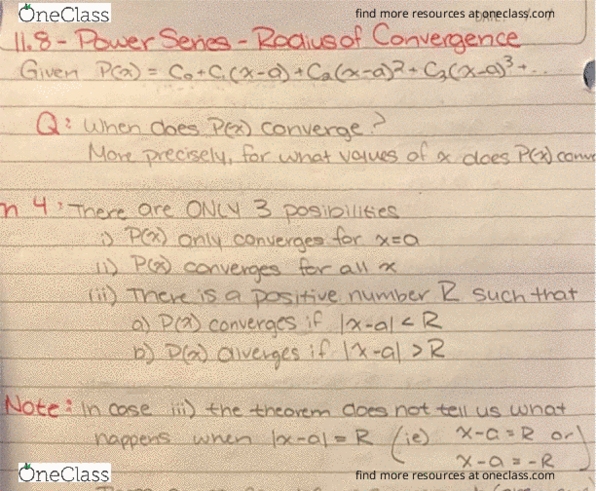 OneClass
find more resources at oneclass.com
11.8 - Power Series - Radius of Convergence
Given P(x) = C₀ + C₁(x-a) + C₂(x-a)² + C₃(x-a)³ + ...
Q: When does P(x) converge?
More precisely, for what values of x does P(x) conve
m 4: There are ONLY 3 posibilities
i) P(x) only converges for x=a
ii) P(x) converges for all x
iii) There is a positive number R such that
a) P(x) converges if |x-a| < R
b) P(x) diverges if |x-a| > R
Note: In case iii) the theorem does not tell us what
happens when |x-a| = R (ie) x-a = R or
x-a = -R)
OneClass
find more resources at oneclass.com